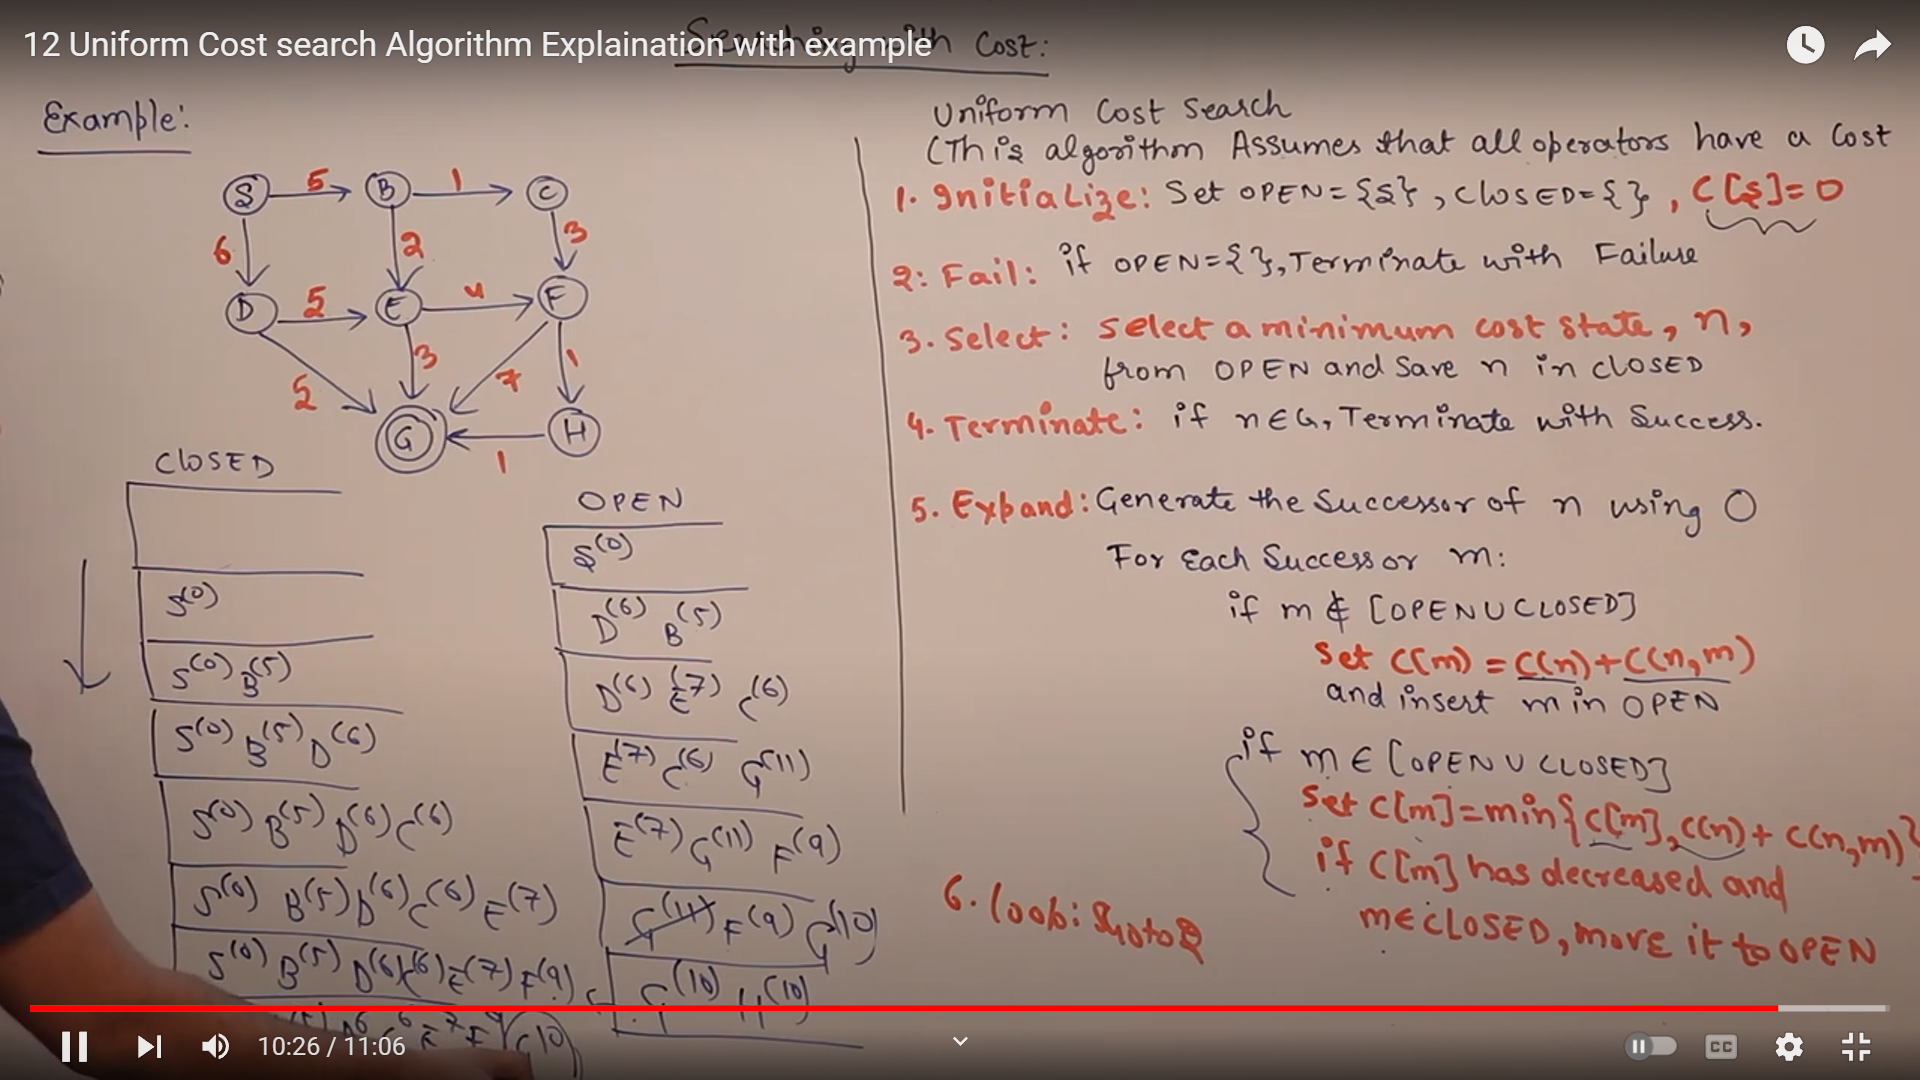 12 Uniform Cost search Algorithm Explaination with example
Searching with Cost:
Example:
S 5 B 1 C
6 2 3
D 5 E 4 F
5 3 7 1
G 1 H
CLOSED
S(0)
S(0) B(5)
S(0) B(5) D(6)
S(0) B(5) D(6) C(6)
S(0) B(5) D(6) C(6) E(7)
S(0) B(5) D(6) C(6) E(7) F(9)
D6 C6 E7 F9 G(10)
OPEN
S(0)
D(6) B(5)
D(6) E(7) C(6)
E(7) C(6) G(11)
E(7) G(11) F(9)
G(11) F(9) G(10)
G(10) H(10)
Uniform Cost Search
(This algorithm Assumes that all operators have a Cost
1. Initialize: Set OPEN={S}, CLOSED={}, C[S]=0
2: Fail: if OPEN={}, Terminate with Failure
3. Select: Select a minimum cost state, n,
from OPEN and Save n in CLOSED
4. Terminate: if n∈G, Terminate with Success.
5. Expand: Generate the Successor of n using O
For Each Successor m:
if m ∉ [OPEN U CLOSED]
Set C(m) = C(n)+C(n,m)
and insert m in OPEN
if m ∈ [OPEN U CLOSED]
Set C[m]=min{C[m],C(n)+C(n,m)}
if C[m] has decreased and
m∈CLOSED, move it to OPEN
6. loop: Goto 2
10:26 / 11:06
CC